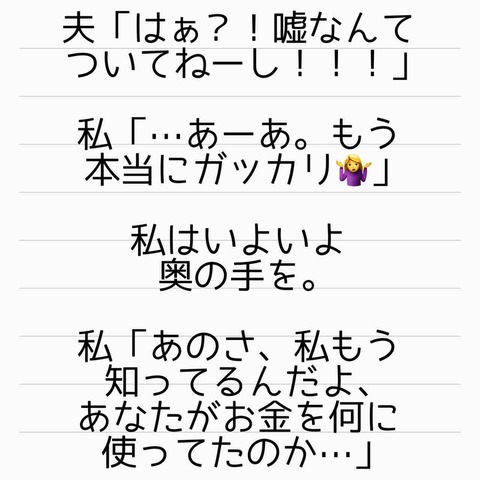 夫「はぁ？！嘘なんて
ついてねーし！！！」
私「…あーあ。もう
本当にガッカリ🤷‍♀️」
私はいよいよ
奥の手を。
私「あのさ、私もう
知ってるんだよ、
あなたがお金を何に
使ってたのか…」